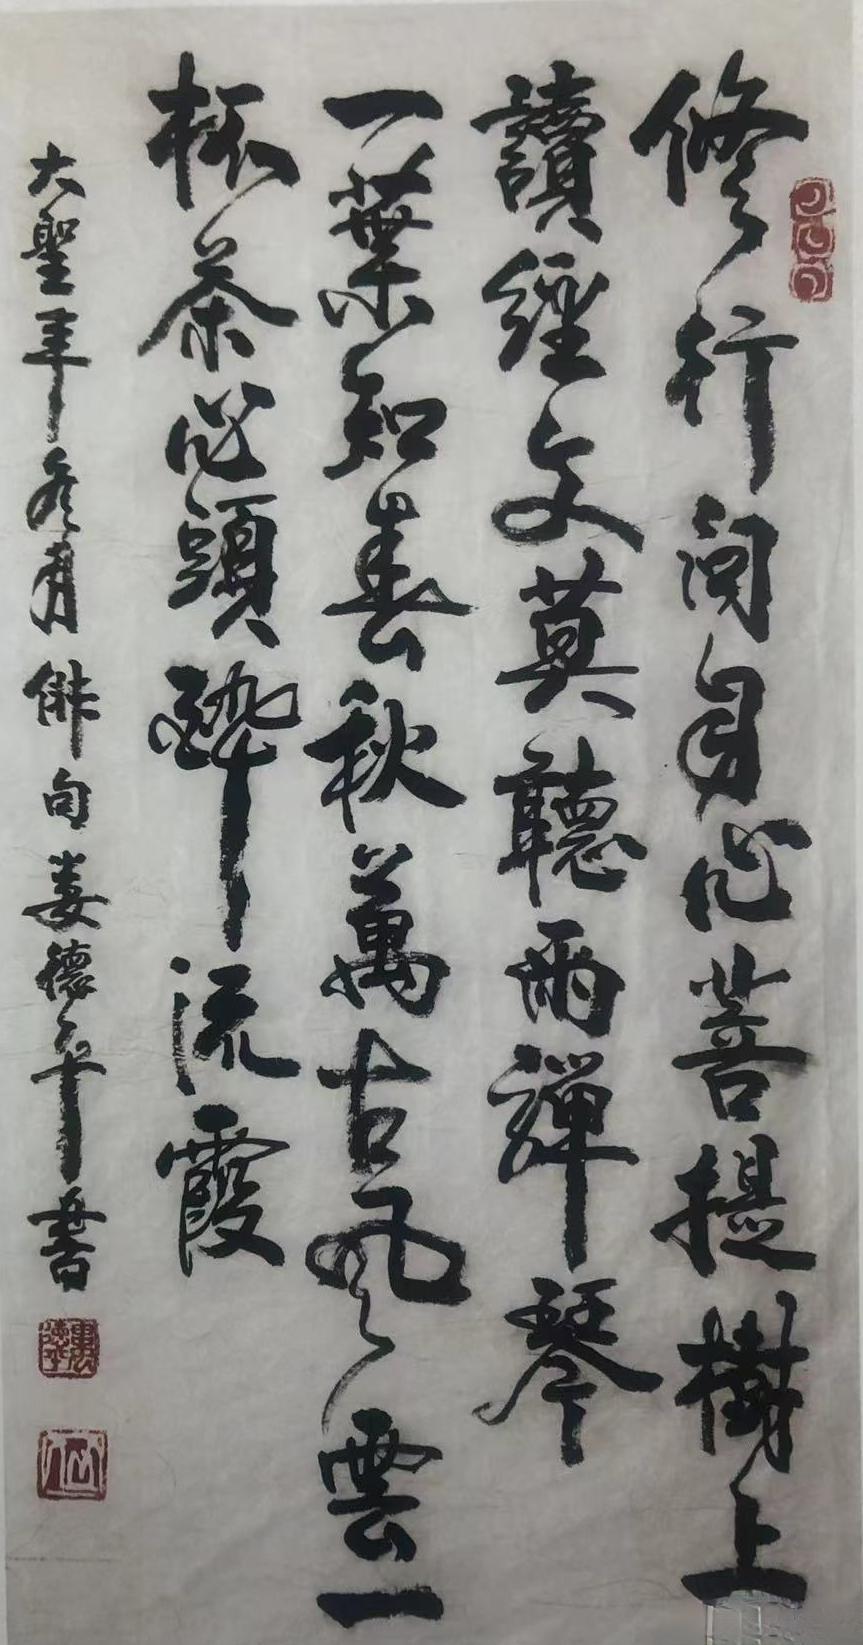 修行问自心菩提樹上
讀經文莫聽雨禪琴
一葉知春秋萬古風雲一
杯茶心頭醉流霞
大聖年冬月俳句婁德平書